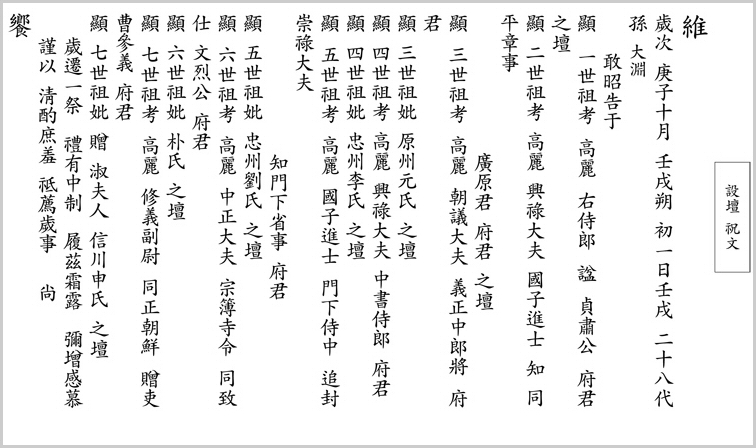 設壇 祝文
維
歲次 庚子十月 壬戌朔 初一日壬戌 二十八代
孫 大淵
敢昭告于
顯 一世祖考 高麗 右侍郎 諡 貞肅公 府君
之壇
顯 二世祖考 高麗 興祿大夫 國子進士 知 同
平章事
廣原君 府君 之壇
顯 三世祖考 高麗 朝議大夫 義正中郎將 府
君
顯 三世祖妣 原州元氏 之壇
顯 四世祖考 高麗 興祿大夫 中書侍郎 府君
顯 四世祖妣 忠州李氏 之壇
顯 五世祖考 高麗 國子進士 門下侍中 追封
崇祿大夫
知門下省事 府君
顯 五世祖妣 忠州劉氏 之壇
顯 六世祖考 高麗 中正大夫 宗簿寺令 同致
仕 文烈公 府君
顯 六世祖妣 朴氏 之壇
顯 七世祖考 高麗 修義副尉 同正朝鮮 贈吏
曹參義 府君
顯 七世祖妣 贈 淑夫人 信川申氏 之壇
歲遷一祭 禮有中制 履茲霜露 彌增感慕
謹以 清酌庶羞 祗薦歲事 尚
饗